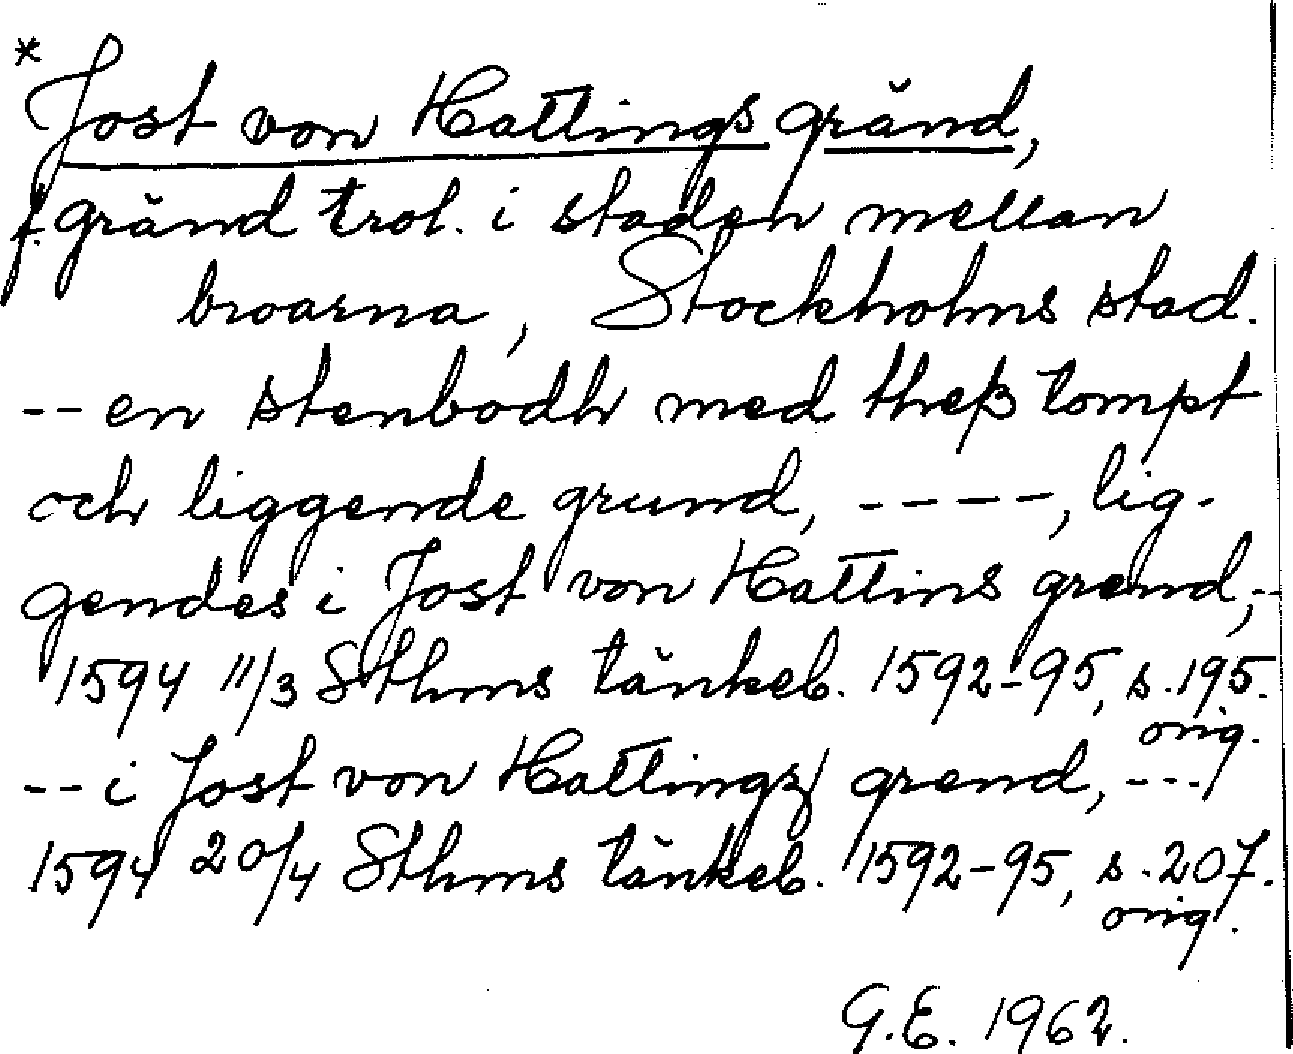 *Jost von Hattings gränd,
f. gränd trol. i staden mellan
broarna, Stockholms stad.
-- en stenbodh med theß tompt
och liggende grund, ----, lig-
gendes i Jost von Hattins grend, --
1594 11/3 Sthms tänkeb. 1592-95, s. 195.
orig.
-- i Jost von Hattingz grend, ---
1594 20/4 Sthms tänkeb. 1592-95, s. 207.
orig.
G.E. 1962.